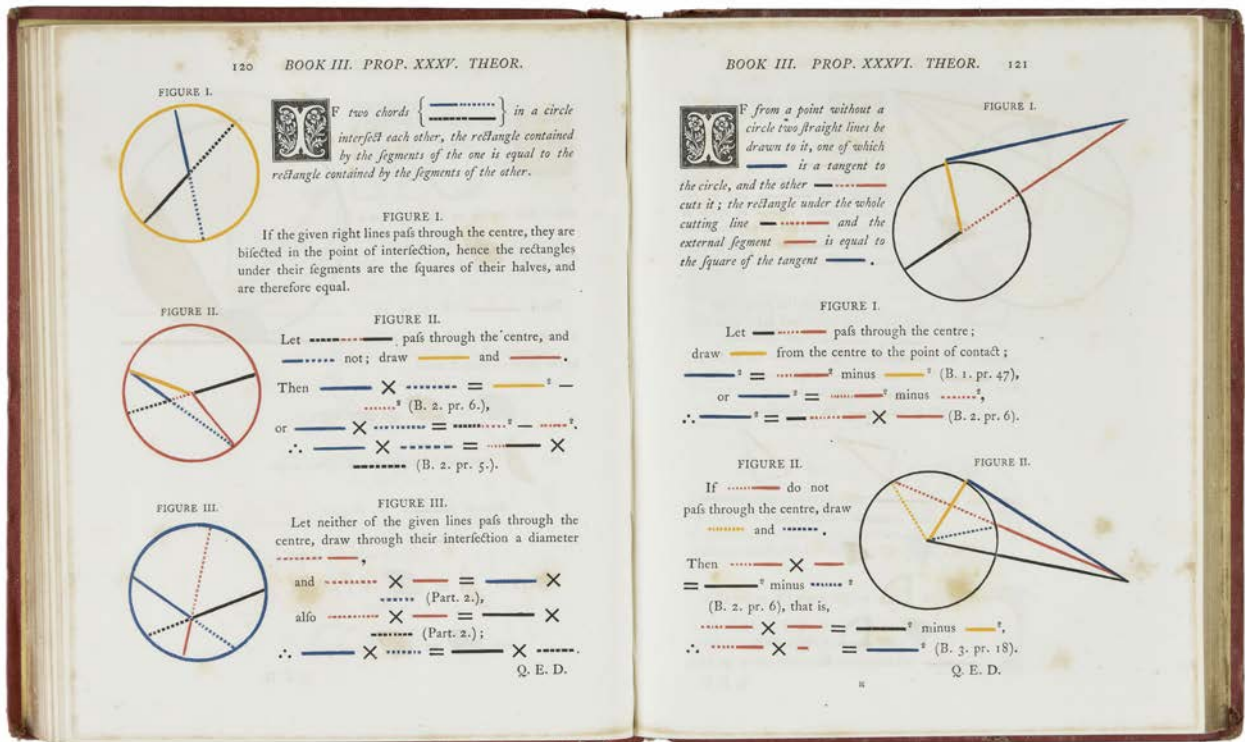 120 BOOK III. PROP. XXXV. THEOR.
FIGURE I.
IF two chords { } in a circle
interſect each other, the rectangle contained
by the ſegments of the one is equal to the
rectangle contained by the ſegments of the other.
FIGURE I.
If the given right lines paſs through the centre, they are
biſected in the point of interſection, hence the rectangles
under their ſegments are the ſquares of their halves, and
are therefore equal.
FIGURE II.
FIGURE II.
Let paſs through the centre, and
not; draw and .
Then × = ² –
² (B. 2. pr. 6.),
or × = ² – ².
∴ × = ×
(B. 2. pr. 5.).
FIGURE III.
FIGURE III.
Let neither of the given lines paſs through the
centre, draw through their interſection a diameter
,
and × = ×
(Part. 2.),
alſo × = ×
(Part. 2.);
∴ × = × .
Q. E. D.
BOOK III. PROP. XXXVI. THEOR. 121
FIGURE I.
IF from a point without a
circle two ſtraight lines be
drawn to it, one of which
is a tangent to
the circle, and the other
cuts it; the rectangle under the whole
cutting line and the
external ſegment is equal to
the ſquare of the tangent .
FIGURE I.
Let paſs through the centre;
draw from the centre to the point of contact;
² = ² minus ² (B. 1. pr. 47),
or ² = ² minus ²,
∴ ² = × (B. 2. pr. 6).
FIGURE II.
FIGURE II.
If do not
paſs through the centre, draw
and .
Then ×
= ² minus ²
(B. 2. pr. 6), that is,
× = ² minus ²,
∴ × = ² (B. 3. pr. 18).
Q. E. D.